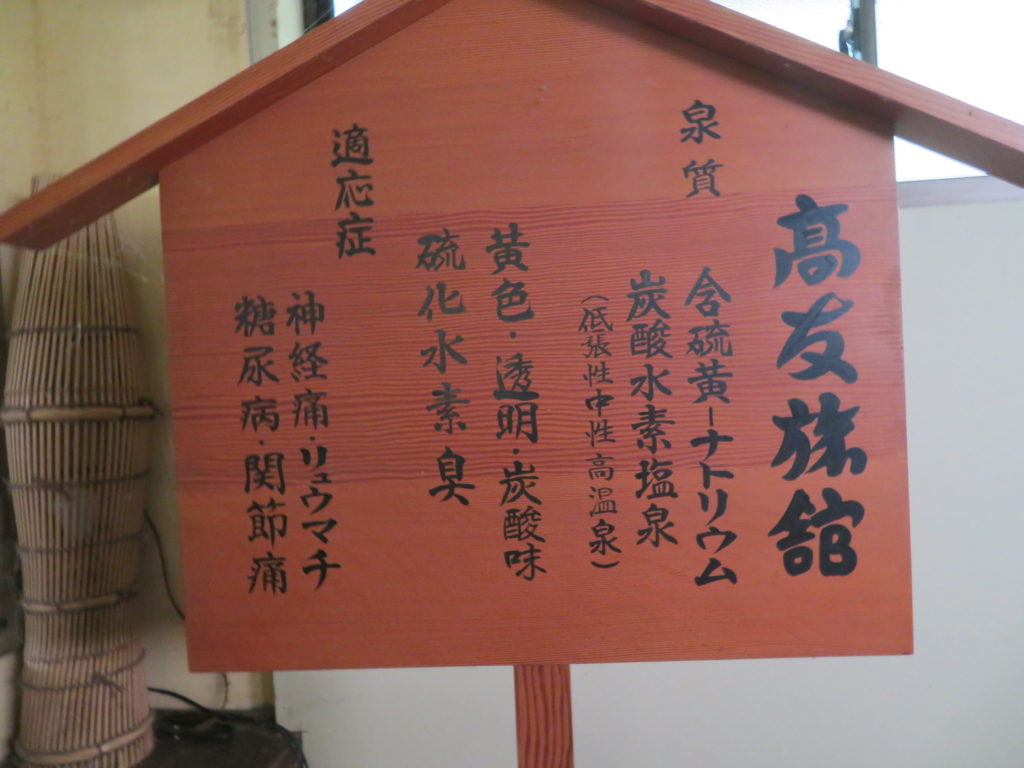 高友旅館
泉質
含硫黄－ナトリウム
炭酸水素塩泉
（低張性中性高温泉）
黄色・透明・炭酸味
硫化水素臭
適応症
神経痛・リュウマチ
糖尿病・関節痛